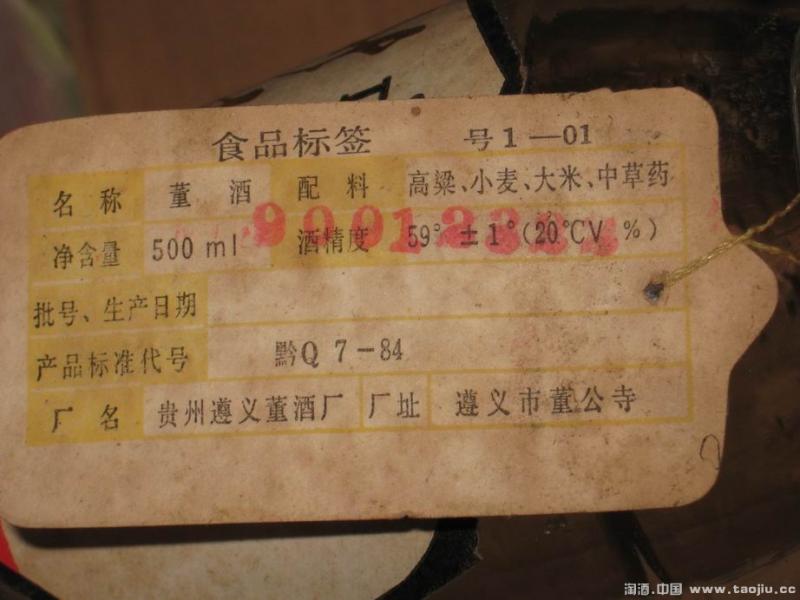 食品标签 号1—01
名称 董酒 配料 高粱、小麦、大米、中草药
净含量 500 ml 酒精度 59°±1°(20℃V %)
批号、生产日期
产品标准代号 黔Q 7-84
厂名 贵州遵义董酒厂 厂址 遵义市董公寺
淘酒.中国 www.taojiu.cc